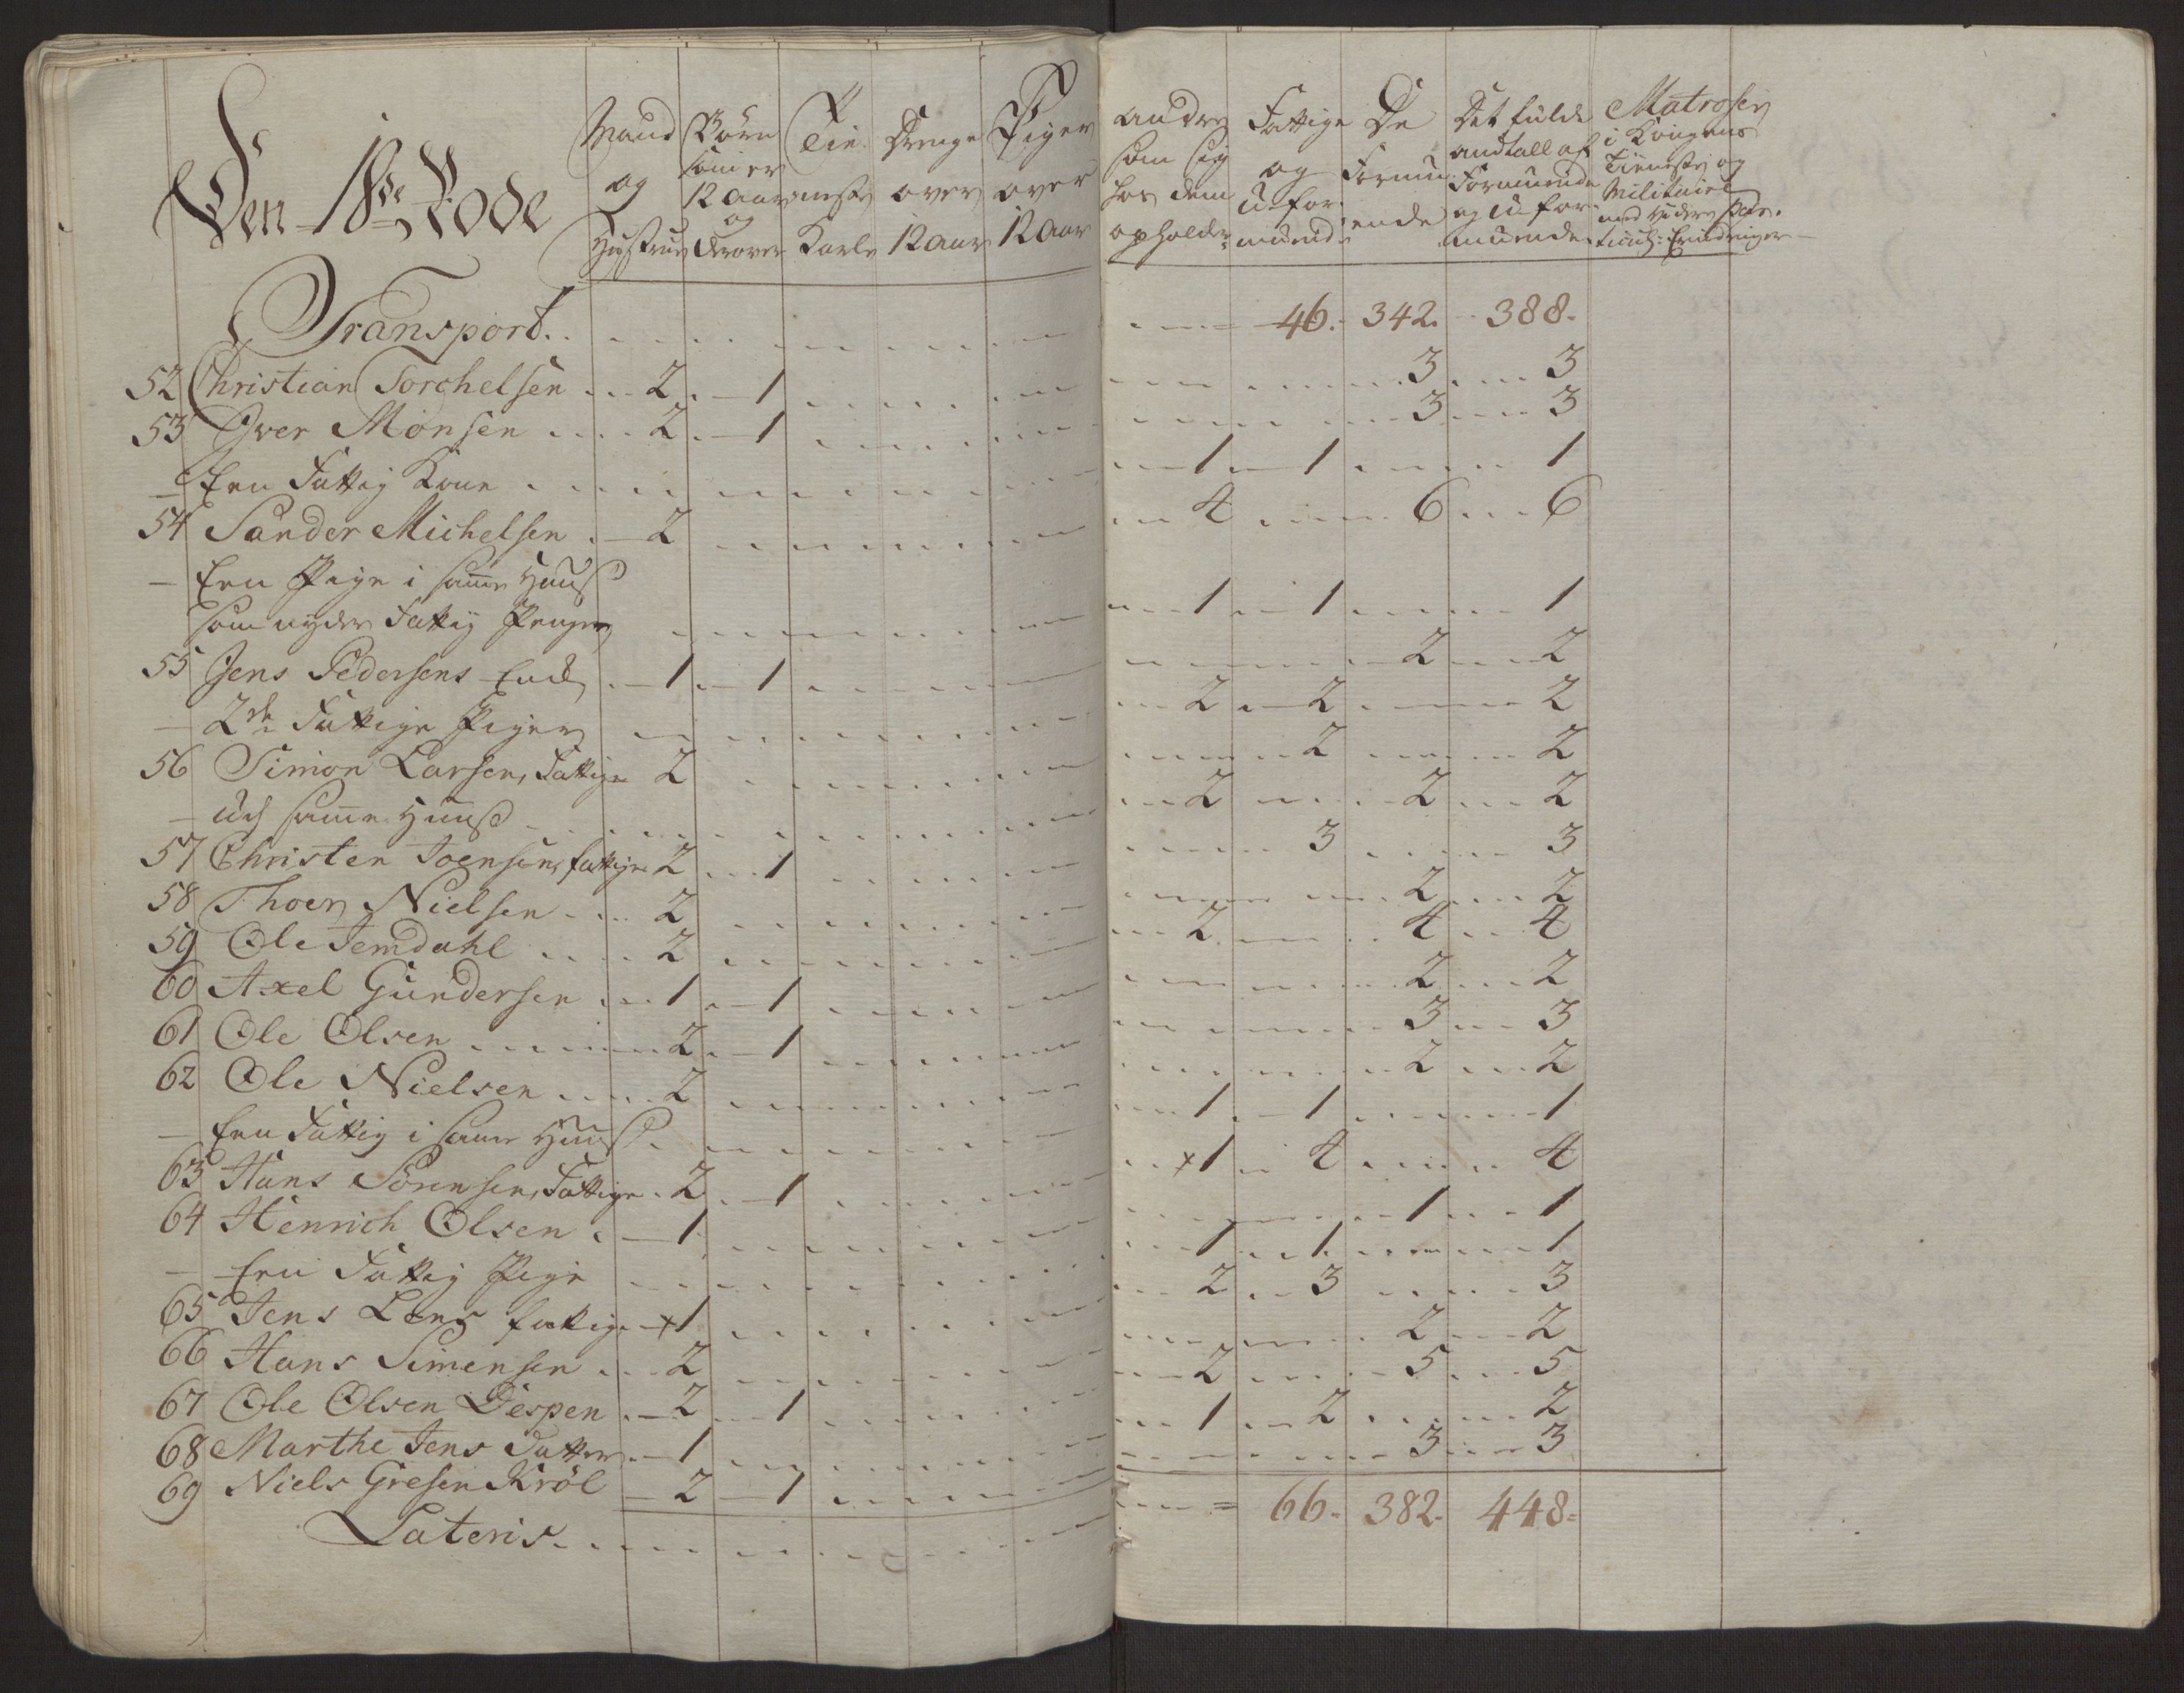 Den 18de Rode
Mand og Hustrue
Børn som er 12 Aar og derover
Tienneste Karle
Drenge over 12 Aar
Piger over 12 Aar
andre som sig hos dem opholder
Fattige og U-formuend:
De Formuende
Det fulde andtall af Formuende og Uformuende
Matroser i Kongens Tieneste og Militaire med videre par-ticul: Erindringer
Transport . . 46. 342. 388.
52 Christian Torchelsen 2 1 3 3
53 Iver Monsen 2 1 3 3
- Een Fattig Kone 1 1 1
54 Sander Michelsen 2 4 6 6
- Een Pige i samme Huus
som nyder Fattig Penger 1 1 1
55 Jens Pedersens Enke 1 1 2 2
- 2de Fattige Piger 2 2 2
56 Simon Larsen, Fattige 2 2 2
- Udj samme Huus 2 2 2
57 Christen Joensen, fattige 2 1 3 3
58 Thoer Nielsen 2 2 2
59 Ole Jemdahl 2 2 4 4
60 Axel Gundersen 1 1 2 2
61 Ole Olsen 2 1 3 3
62 Ole Nielsen 2 2 2
- Een Fattig i samme Huus 1 1 1
63 Hans Sørensen, Fattige 2 1 x1 4 4
64 Henrich Olsen 1 1 1
- Een Fattig Pige 1 1 1
65 Jens Lens fattige x1 2 3 3
66 Hans Simensen 2 2 2
67 Ole Olsen Despen 2 1 2 5 5
68 Marthe Jens Datter 1 1 2 2
69 Niels Gresen Krøl 2 1 3 3
Lateris 66. 382. 448.